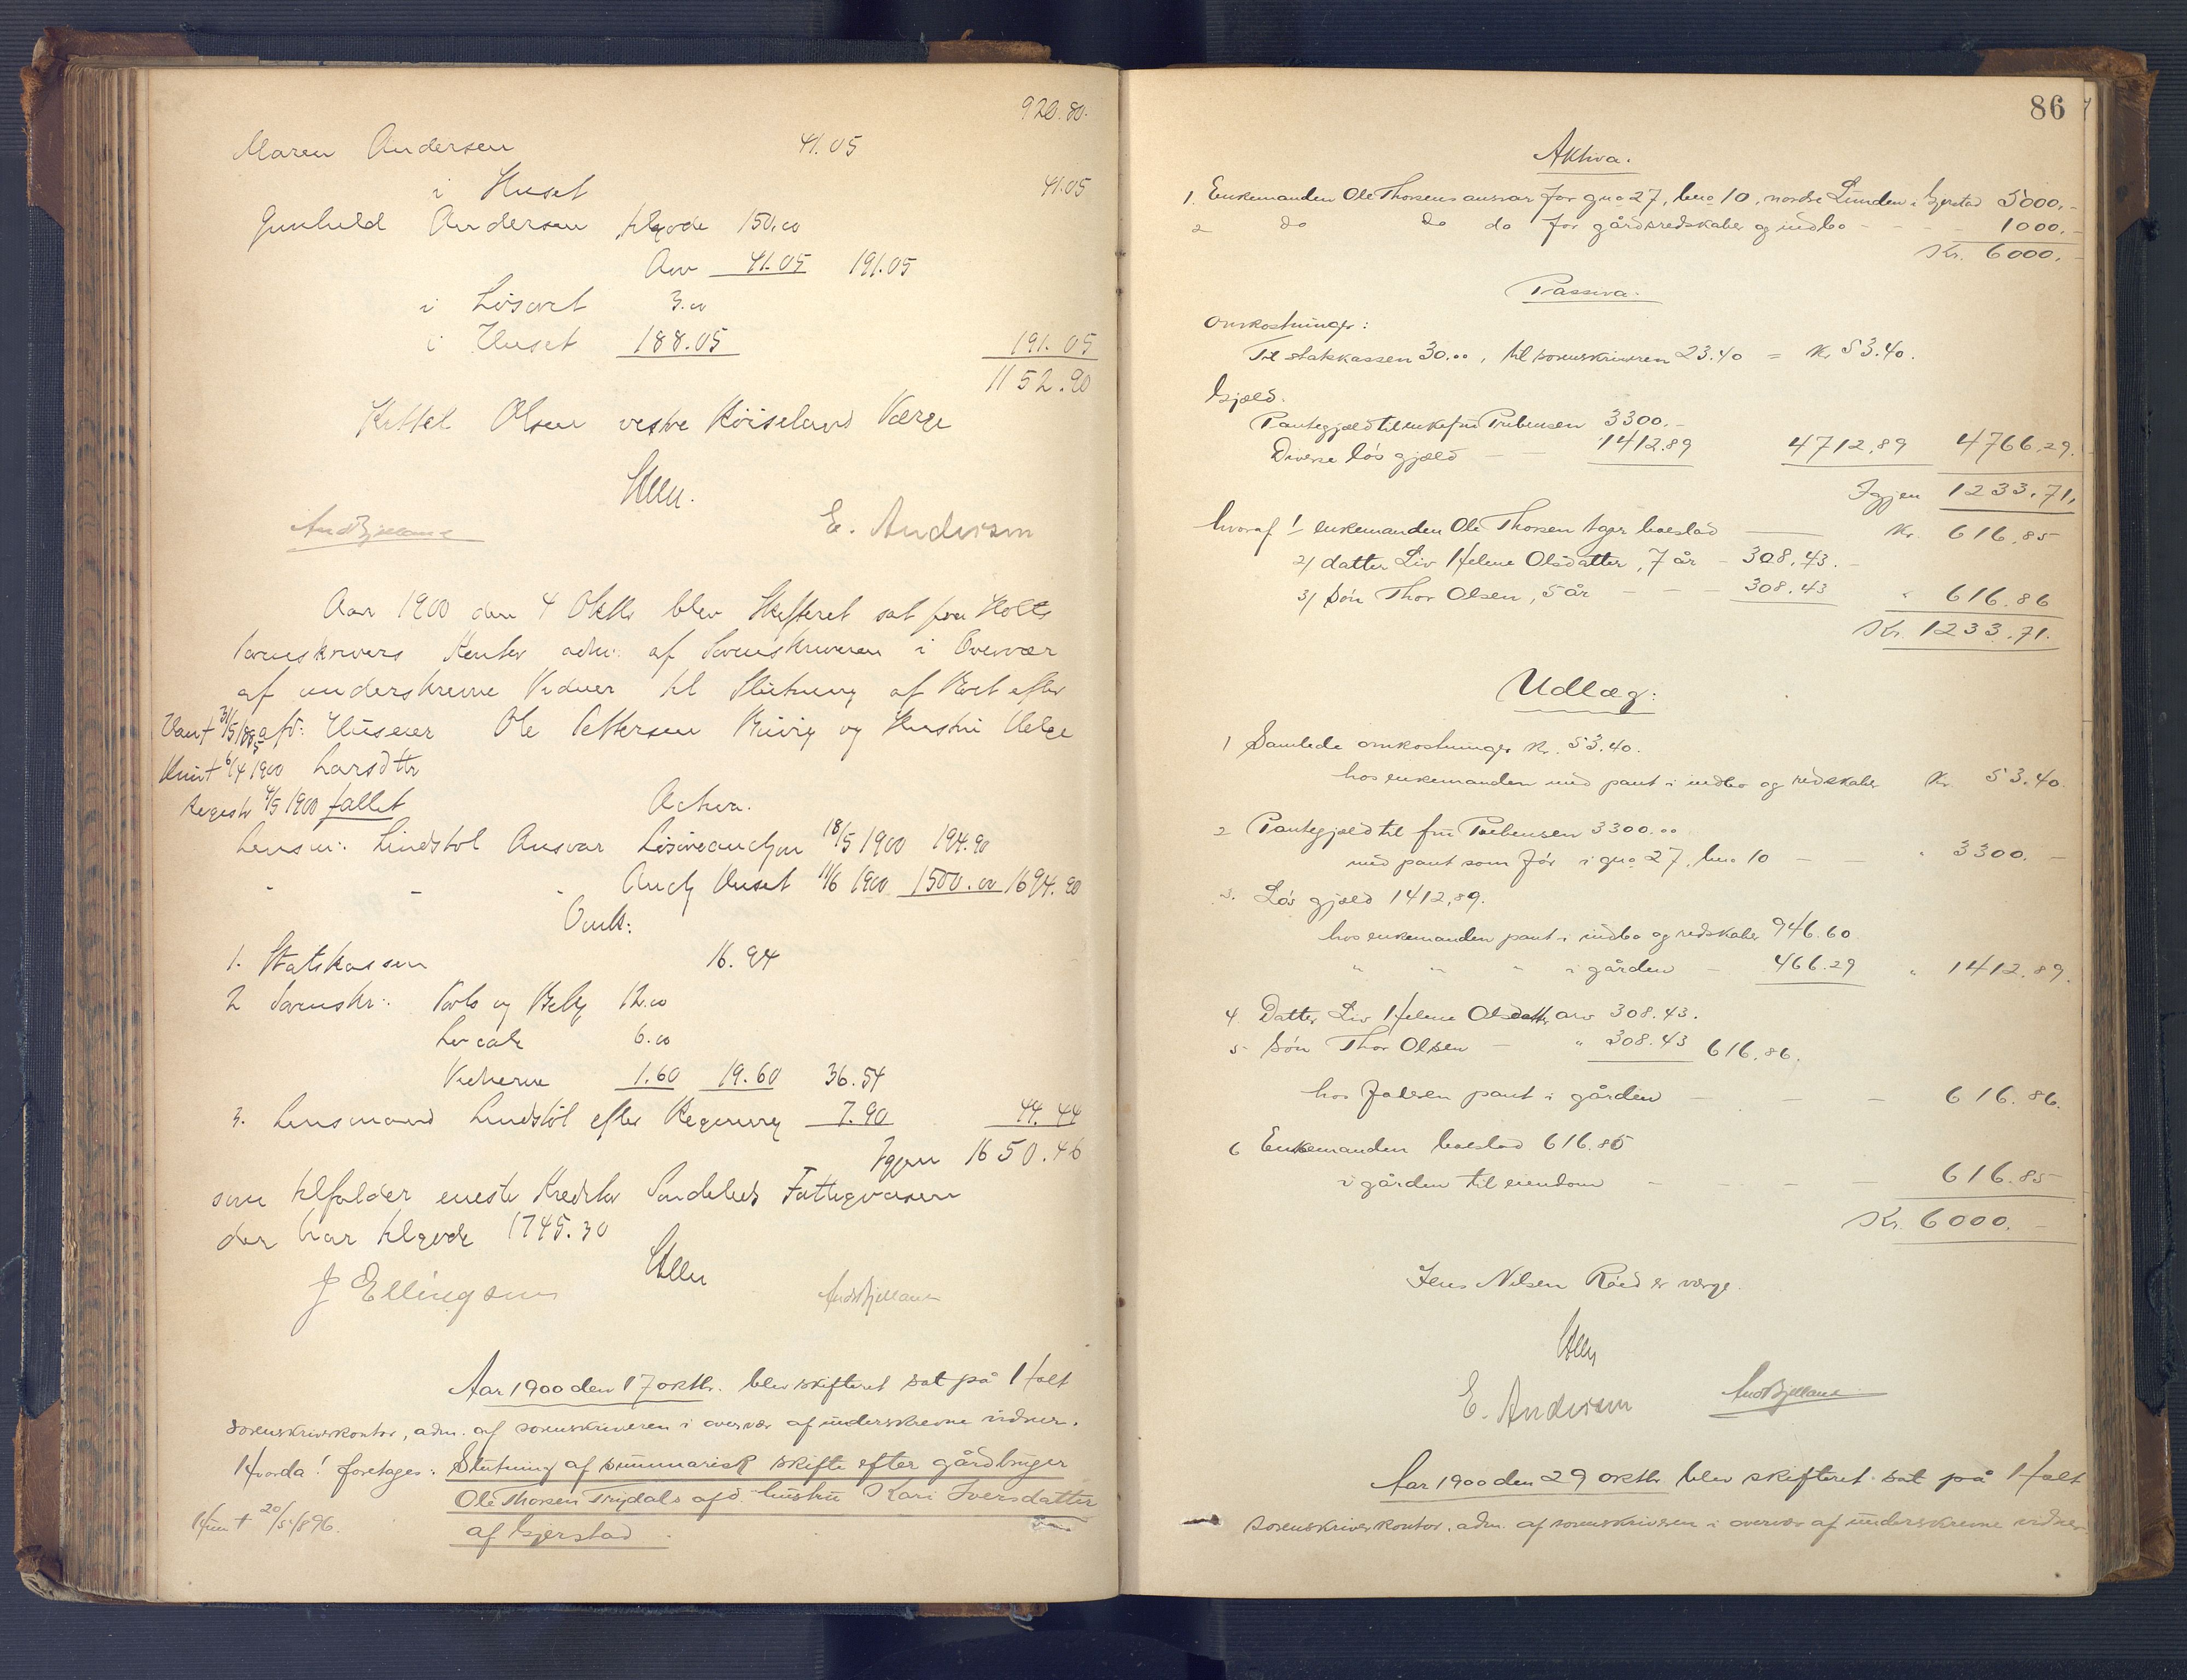 920.80.
Maren Andersen 41.05
i Huset 41.05
Gunhild Andersen tilgode 150.00
Arv 41.05 191.05
i Løsøret 3.00
i Huset 188.05 191.05
1152.90
Kittel Olsen vestre Røiseland Værge
E. Andersen
Aar 1900 den 4 Oktbr blev Skifteret sat paa Holts
Sorenskrivers Kontor adm: af Sorenskriveren i Overvær
af underskrevne Vidner til Slutning af Boet efter
Man † 31/5 1885 afd: Huseier Ole Pettersen Buvig og Hustru Helge
Hun † 6/4 1900 Larsdtr
Registr 4/5 1900 fallit Activa.
Lensm: Lindstøl Ansvar Løsøreauction 18/5 1900 194.90
" - " Auct Huset 11/6 1900 1500.00 1694.90
Omk:
1. Statskassen 16.94
2 Sorenskr: Forb og Bek 12.00
Locale 6.00
Vidnerne 1.60 19.60 36.54
3. Lensmand Lindstøl efter Regning 7.90 44.44
Igjen 1650.46
som tilfalder eneste Kreditor Søndeleds Fattigvæsen
der har tilgode 1745.30
J Ellingsen
Aar 1900 den 17 oktbr. blev skifteret sat på Holt
sorenskriverkontor, adm. af sorenskriveren i overvær af underskrevne vidner.
Hvorda! foretages: Slutning af summarisk skifte efter gårdbruger
Ole Thorsen Trydals afd. hustru Kari Iversdatter
Hun † 20/5 1896.
af Gjerstad
86
Aktiva.
1. Enkemanden Ole Thorsens ansvar for gno 27, bno 10, nordre Lunden i Gjerstad 5000.-
2 do do do for gårdsredskaber og indbo - - - 1000.-
Kr. 6000.-
Passiva.
Omkostninger:
Til statskassen 30.00, til sorenskriveren 23.40 = Kr 53.40.
Gjæld.
Pantegjæld til enkefru Prebensen 3300.-
Diverse løs gjæld - - 1412.89 4712,89 4766,29.
Igjen 1233,71,
hvoraf 1/ enkemanden Ole Thorsen tager boeslod Kr. 616,85
2/ datter Liv Helene Olsdatter, 7 år - 308.43. -
3/ Søn Thor Olsen, 5 år - - - 308.43 " 616.86
Kr. 1233.71.
Udlæg:
1 Samlede omkostninger Kr. 53.40.
hos enkemanden med pant i indbo og redskaber Kr 53.40.
2 Pantegjæld til fru Prebensen 3300.00
med pant som før i gno 27, bno 10 - - " 3300. -
3. Løs gjæld 1412,89.
hos enkemanden pant i indbo og redskaber 946.60
" " " i gården - 466.29 " 1412.89.
4 Datter Liv Helene Olsdatter arv 308.43.
5 Søn Thor Olsen - " 308.43 616.86.
hos faderen pant i gården - - - 616.86.
6 Enkemanden boeslod 616.85
i gården til eiendom - - - - 616.85
Kr. 6000. -
Jens Nilsen Røed er værge.
E. Andersen
Aar 1900 den 29 oktbr blev skifteret sat på Holt
sorenskriverkontor, adm. af sorenskriveren i overvær af underskrevne vidner